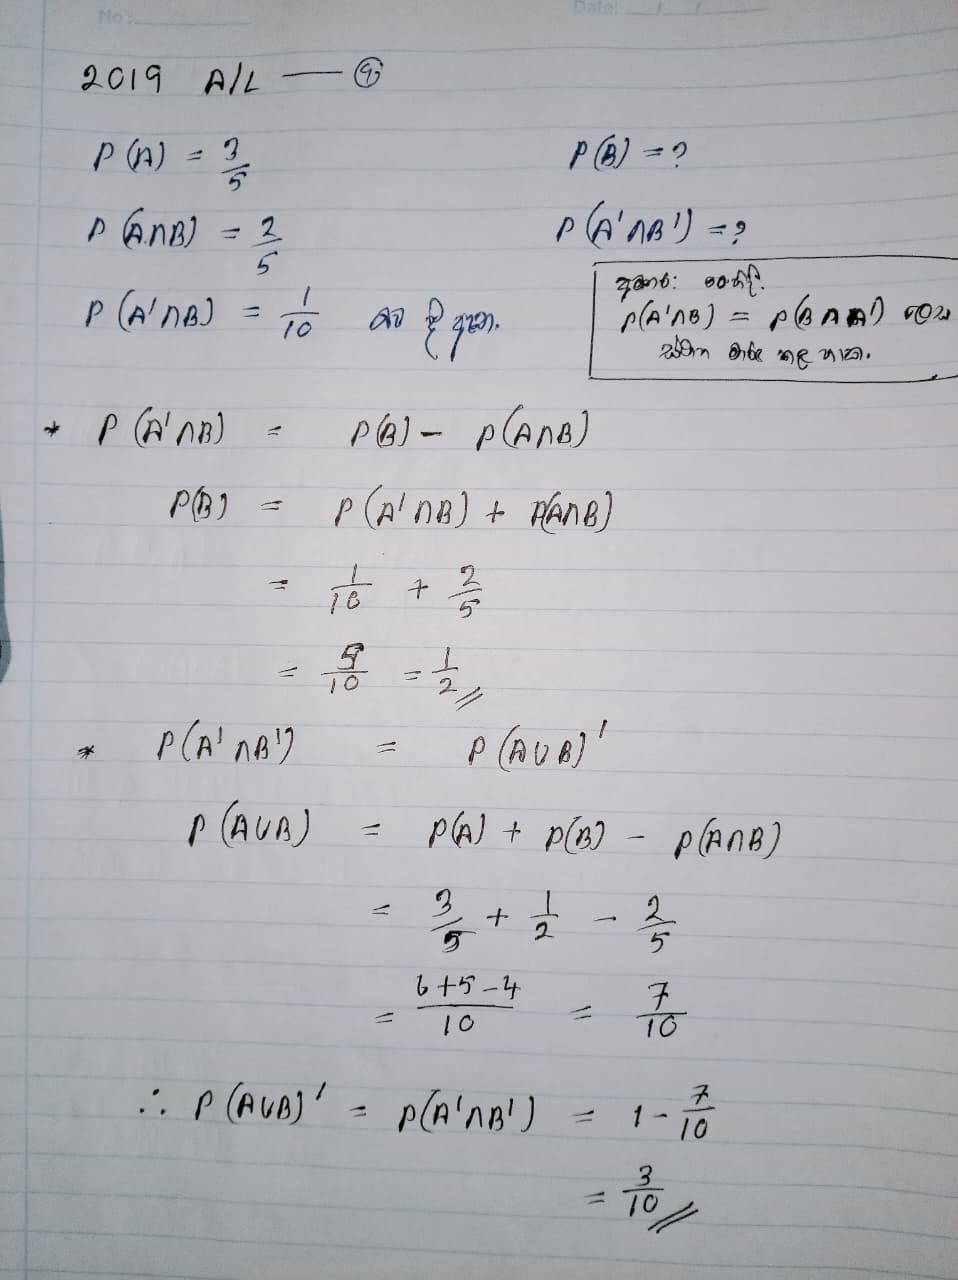 No:
Date: / /
2019 A/L — 9
P(A) = 3/5
P(B) = ?
P(A∩B) = 2/5
P(A'∩B') = ?
P(A'∩B) = 1/10 බව දී ඇත.
P(A'∩B) = P(B∩A') ලෙස
* P(A'∩B) = P(B) - P(A∩B)
P(B) = P(A'∩B) + P(A∩B)
= 1/10 + 2/5
= 5/10 = 1/2
* P(A'∩B') = P(A∪B)'
P(A∪B) = P(A) + P(B) - P(A∩B)
= 3/5 + 1/2 - 2/5
= 6+5-4/10 = 7/10
∴ P(A∪B)' = P(A'∩B') = 1 - 7/10
= 3/10